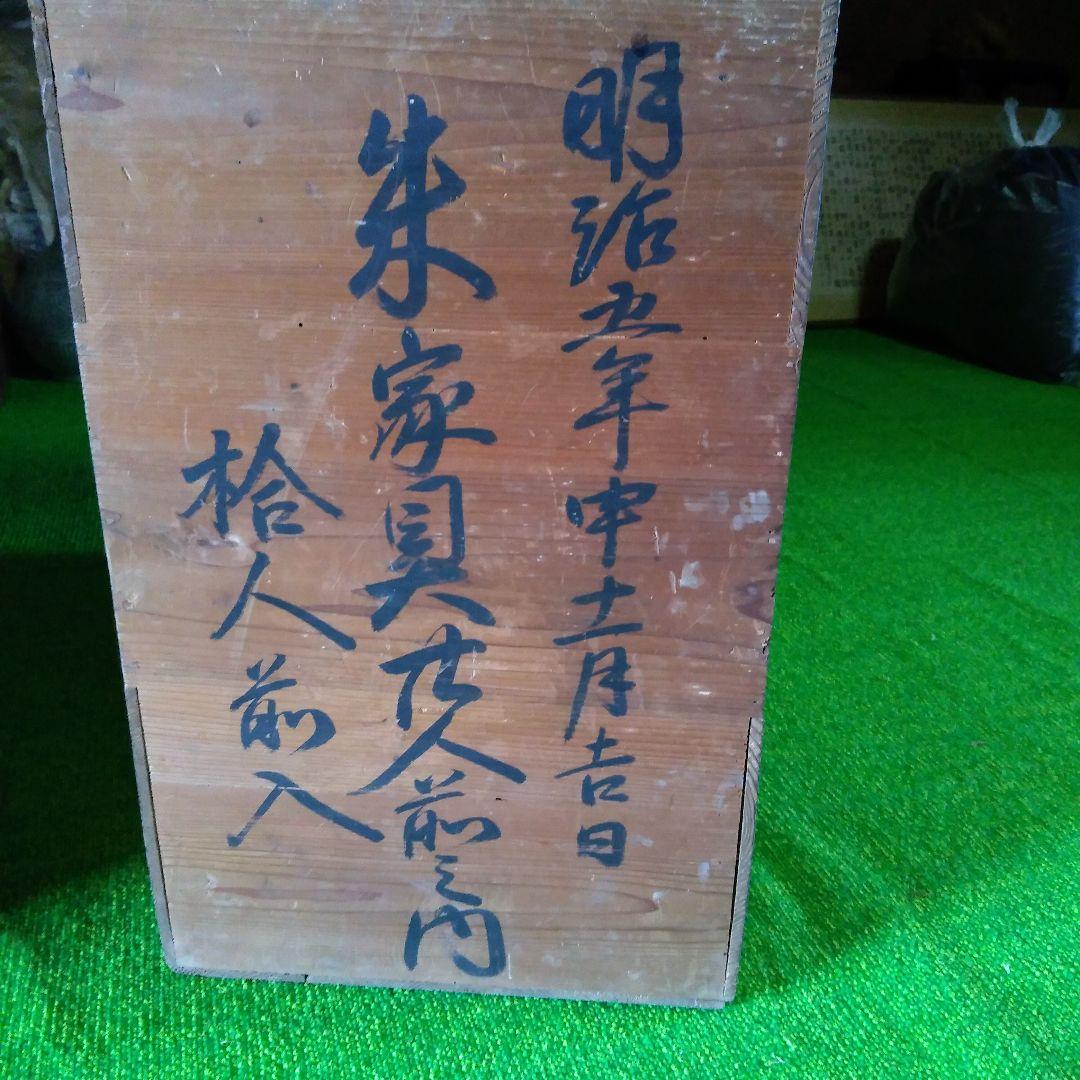 明治五年申十一月吉日
朱家具廿人前之内
拾人前入